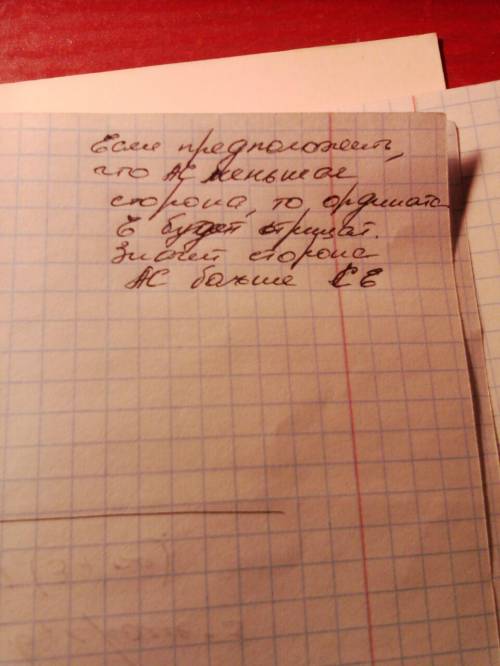 Если предположить,
что АС меньшая
сторона, то ордината
Е будет отрицат.
Значит сторона
АС больше СЕ